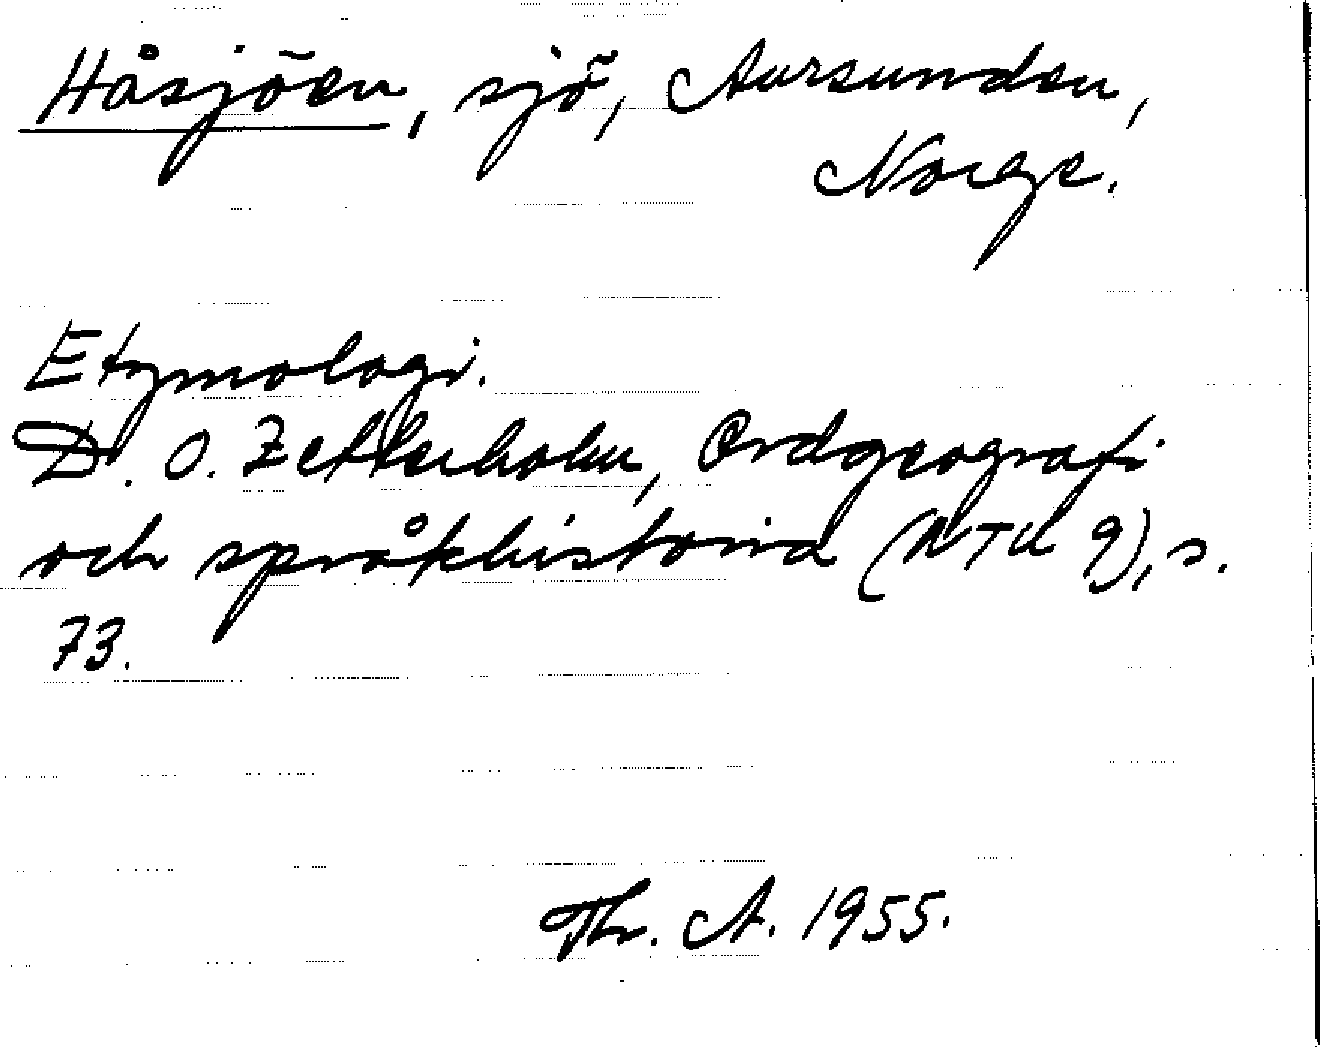 Håsjöen, sjö, Aursunden,
Norge.
Etymologi.
D. O. Zetterholm, Ordgeografi
och språkhistoria (NTU 9), s.
73.
Thr. A. 1955.